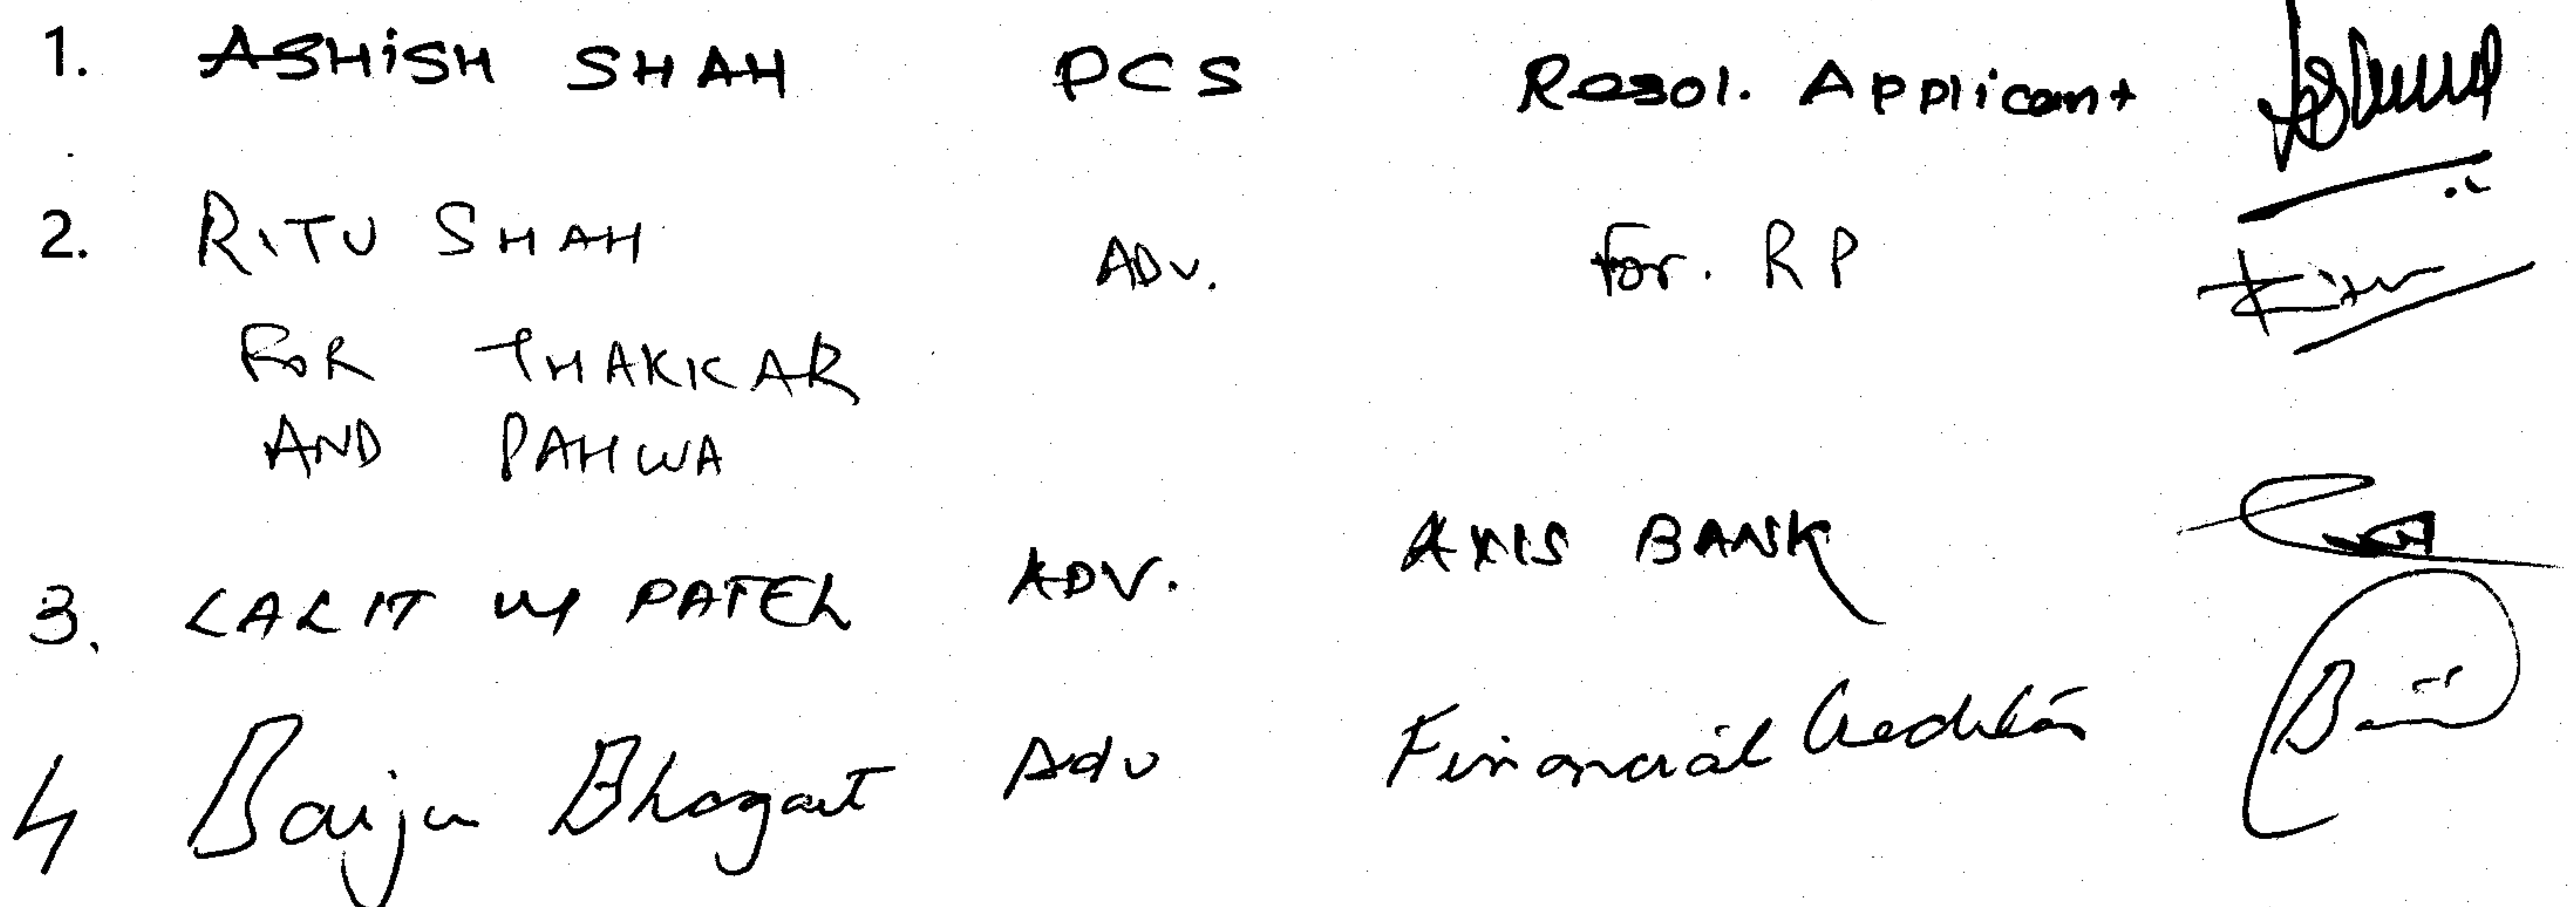 1. ASHISH SHAH PCS Resol. Applicant
2. RITU SHAH ADV. For. RP
FOR THAKKAR
AND PAHWA
3. LALIT M PATEL ADV. AXIS BANK
4 Baiju Bhagat Adv Financial Creditor